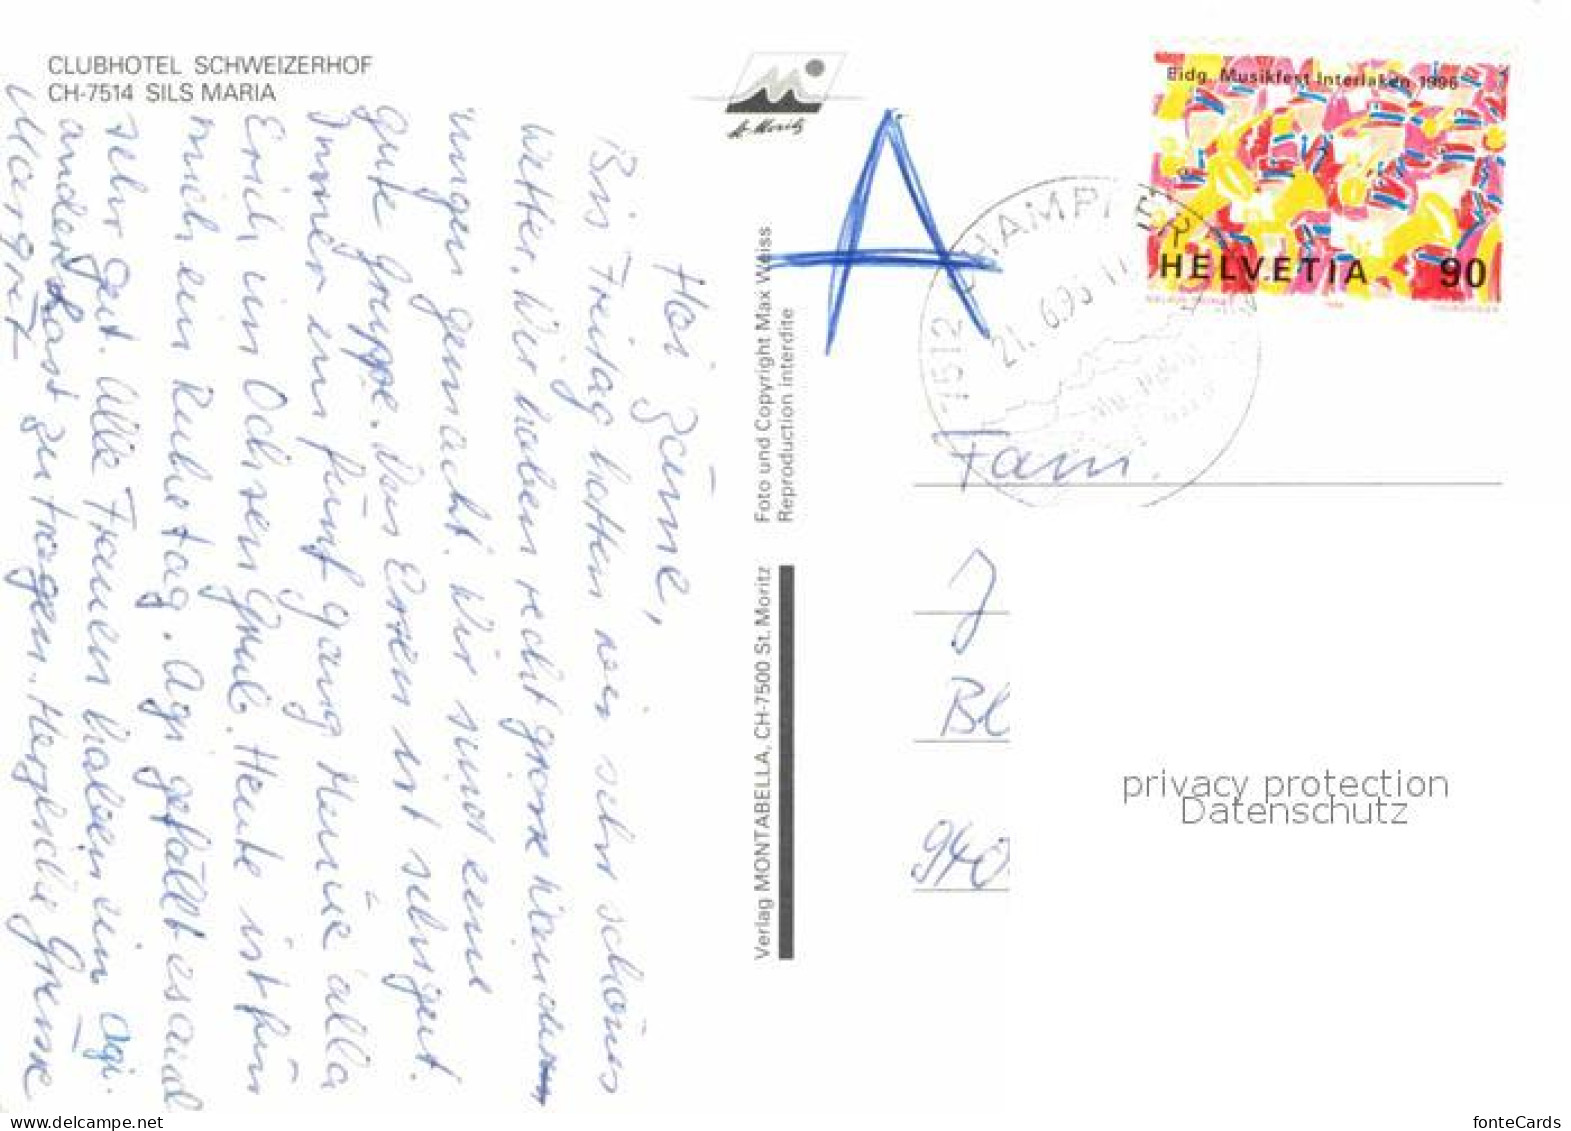 CLUBHOTEL SCHWEIZERHOF
CH-7514 SILS MARIA
Hoi zäme,
Bis Freitag hatten wir sehr schönes
Wetter. Wir haben recht grosse Wander-
ungen gemacht. Wir sind eine
gute Gruppe. Das Essen ist sehr gut.
Immer ein fünf gang Menue alla
Erich im Ochsen Grub. Heute ist für
mich ein Ruhetag. Agi gefällt es und
sehr gut. Alle Frauen haben ein Agi.
andern Last zu tragen. Herzliche Grüsse
Margret
St. Moritz
Foto und Copyright Max Weiss
Reproduction interdite
Verlag MONTABELLA, CH-7500 St. Moritz
A
Eidg. Musikfest Interlaken 1996
HELVETIA 90
7512 CHAMPFÈR
21. 6.96
Fam.
J
Bl
940
privacy protection
Datenschutz
www.delcampe.net
fonteCards